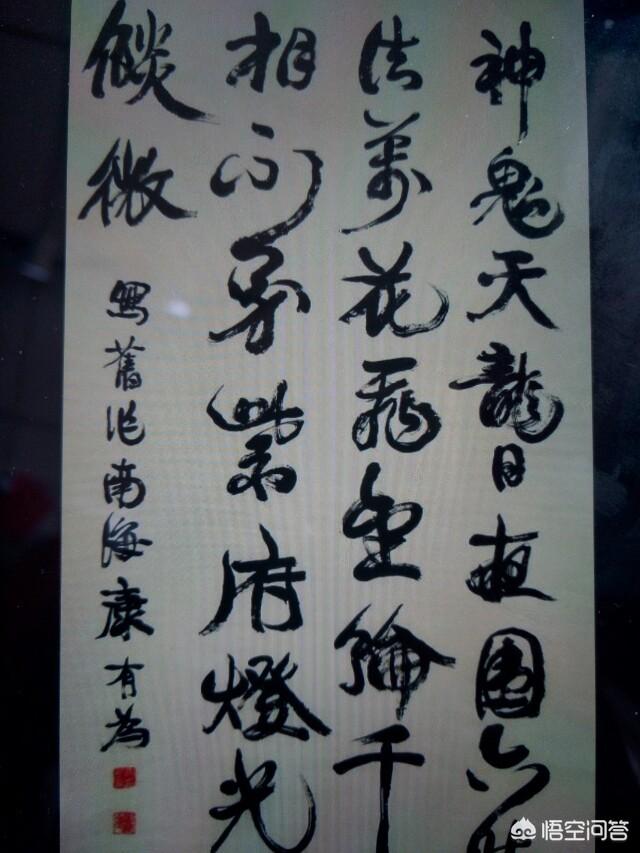 神鬼天龍日夜圍六
法萬花飛千
相紫府燈光
微
寫舊作南海康有為
悟空问答